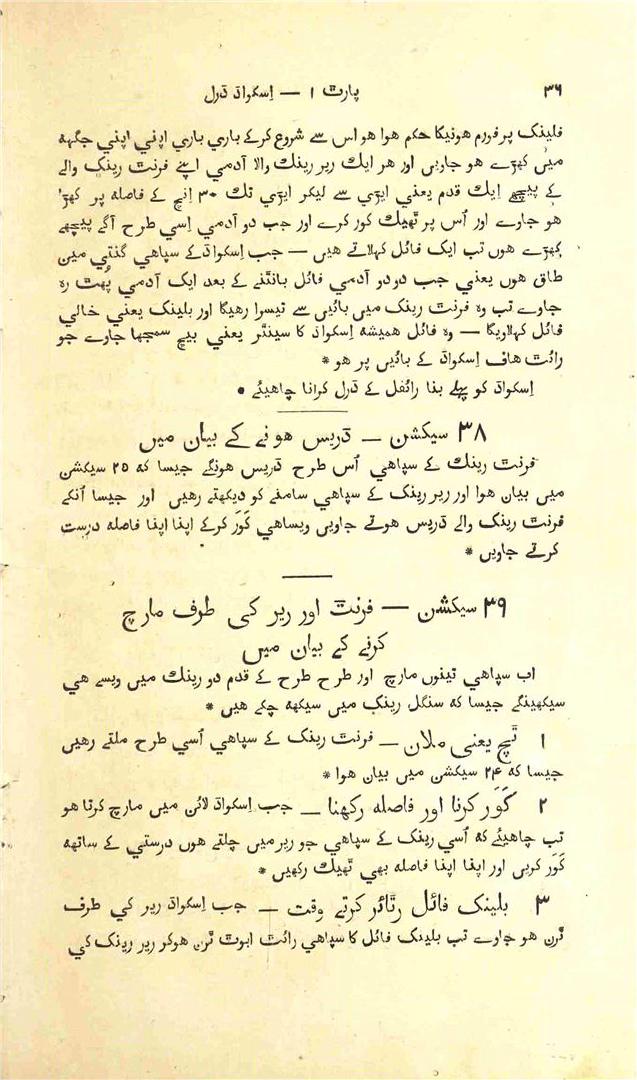 ۳۶
پارٹ ۱ — اِسکواڈ ڈرل
فلینک پر فورم ہونیکا حکم ہوا ہو اس سے شروع کرکے باري باري اپني اپني جگہہ
میں کھڑے ہو جاویں اور ہر ایک ریر رینک والا آدمي اپنے فرنٹ رینک والے
کے پیچھے ایک قدم یعني ایڑي سے لیکر ایڑي تک ۳۰ اِنچ کے فاصلہ پر کھڑا
ہو جاوے اور اُس پر ٹھیک کور کرے اور جب دو آدمي اِسي طرح آگے پیچھے
کھڑے ہوں تب ایک فائل کہلاتے ہیں — جب اِسکواڈ کے سپاهي گنتي میں
طاق ہوں یعني جب دو دو آدمي فائل بانٹنے کے بعد ایک آدمي پُھٹ رہ
جاوے تب وہ فرنٹ رینک میں بائیں سے تیسرا رهیگا اور بلینک یعني خالي
فائل کہلاویگا — وہ فائل همیشه اِسکواڈ کا سینٹر یعني بیچ سمجھا جاوے جو
رائٹ هاف اِسکواڈ کے بائیں پر هو *
اِسکواڈ کو پہلے بنا رائفل کے ڈرل کرانا چاهیئے *
۳۸ سیکشن — ڈریس هونے کے بیان میں
فرنٹ رینک کے سپاهي اُس طرح ڈریس هونگے جیسا که ۲۵ سیکشن
میں بیان هوا اور ریر رینک کے سپاهي سامنے کو دیکھتے رهیں اور جیسا اُنکے
فرنٹ رینک والے ڈریس هوتے جاویں ویساهي کَوَر کرکے اپنا اپنا فاصله درست
کرتے جاویں *
۳۹ سیکشن — فرنٹ اور ریر کي طرف مارچ
کرنے کے بیان میں
اب سپاهي تینوں مارچ اور طرح طرح کے قدم دو رینک میں ویسے هي
سیکھینگے جیسا که سنگل رینک میں سیکھه چکے هیں *
۱ ٹَچ یعني ملان — فرنٹ رینک کے سپاهي اُسي طرح ملتے رهیں
جیسا که ۲۴ سیکشن میں بیان هوا *
۲ کَوَر کرنا اور فاصله رکھنا — جب اِسکواڈ لائن میں مارچ کرتا هو
تب چاهیئے که اُسي رینک کے سپاهي جو ریر میں چلتے هوں درستي کے ساتھه
کَوَر کریں اور اپنا اپنا فاصله بھي ٹھیک رکھیں *
۳ بلینک فائل رٹائر کرتے وقت — جب اِسکواڈ ریر کي طرف
ٹرن هو جاوے تب بلینک فائل کا سپاهي رائٹ ابوٹ ٹرن هوکر ریر رینک کي